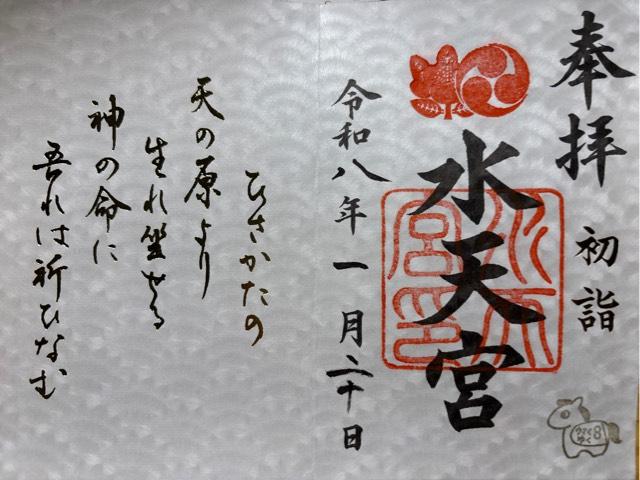 奉拝
初詣
水天宮
水天宮印
令和八年一月二十日
ひさかたの
天の原より
生れ坐せる
神の命に
吾れは祈ひなむ